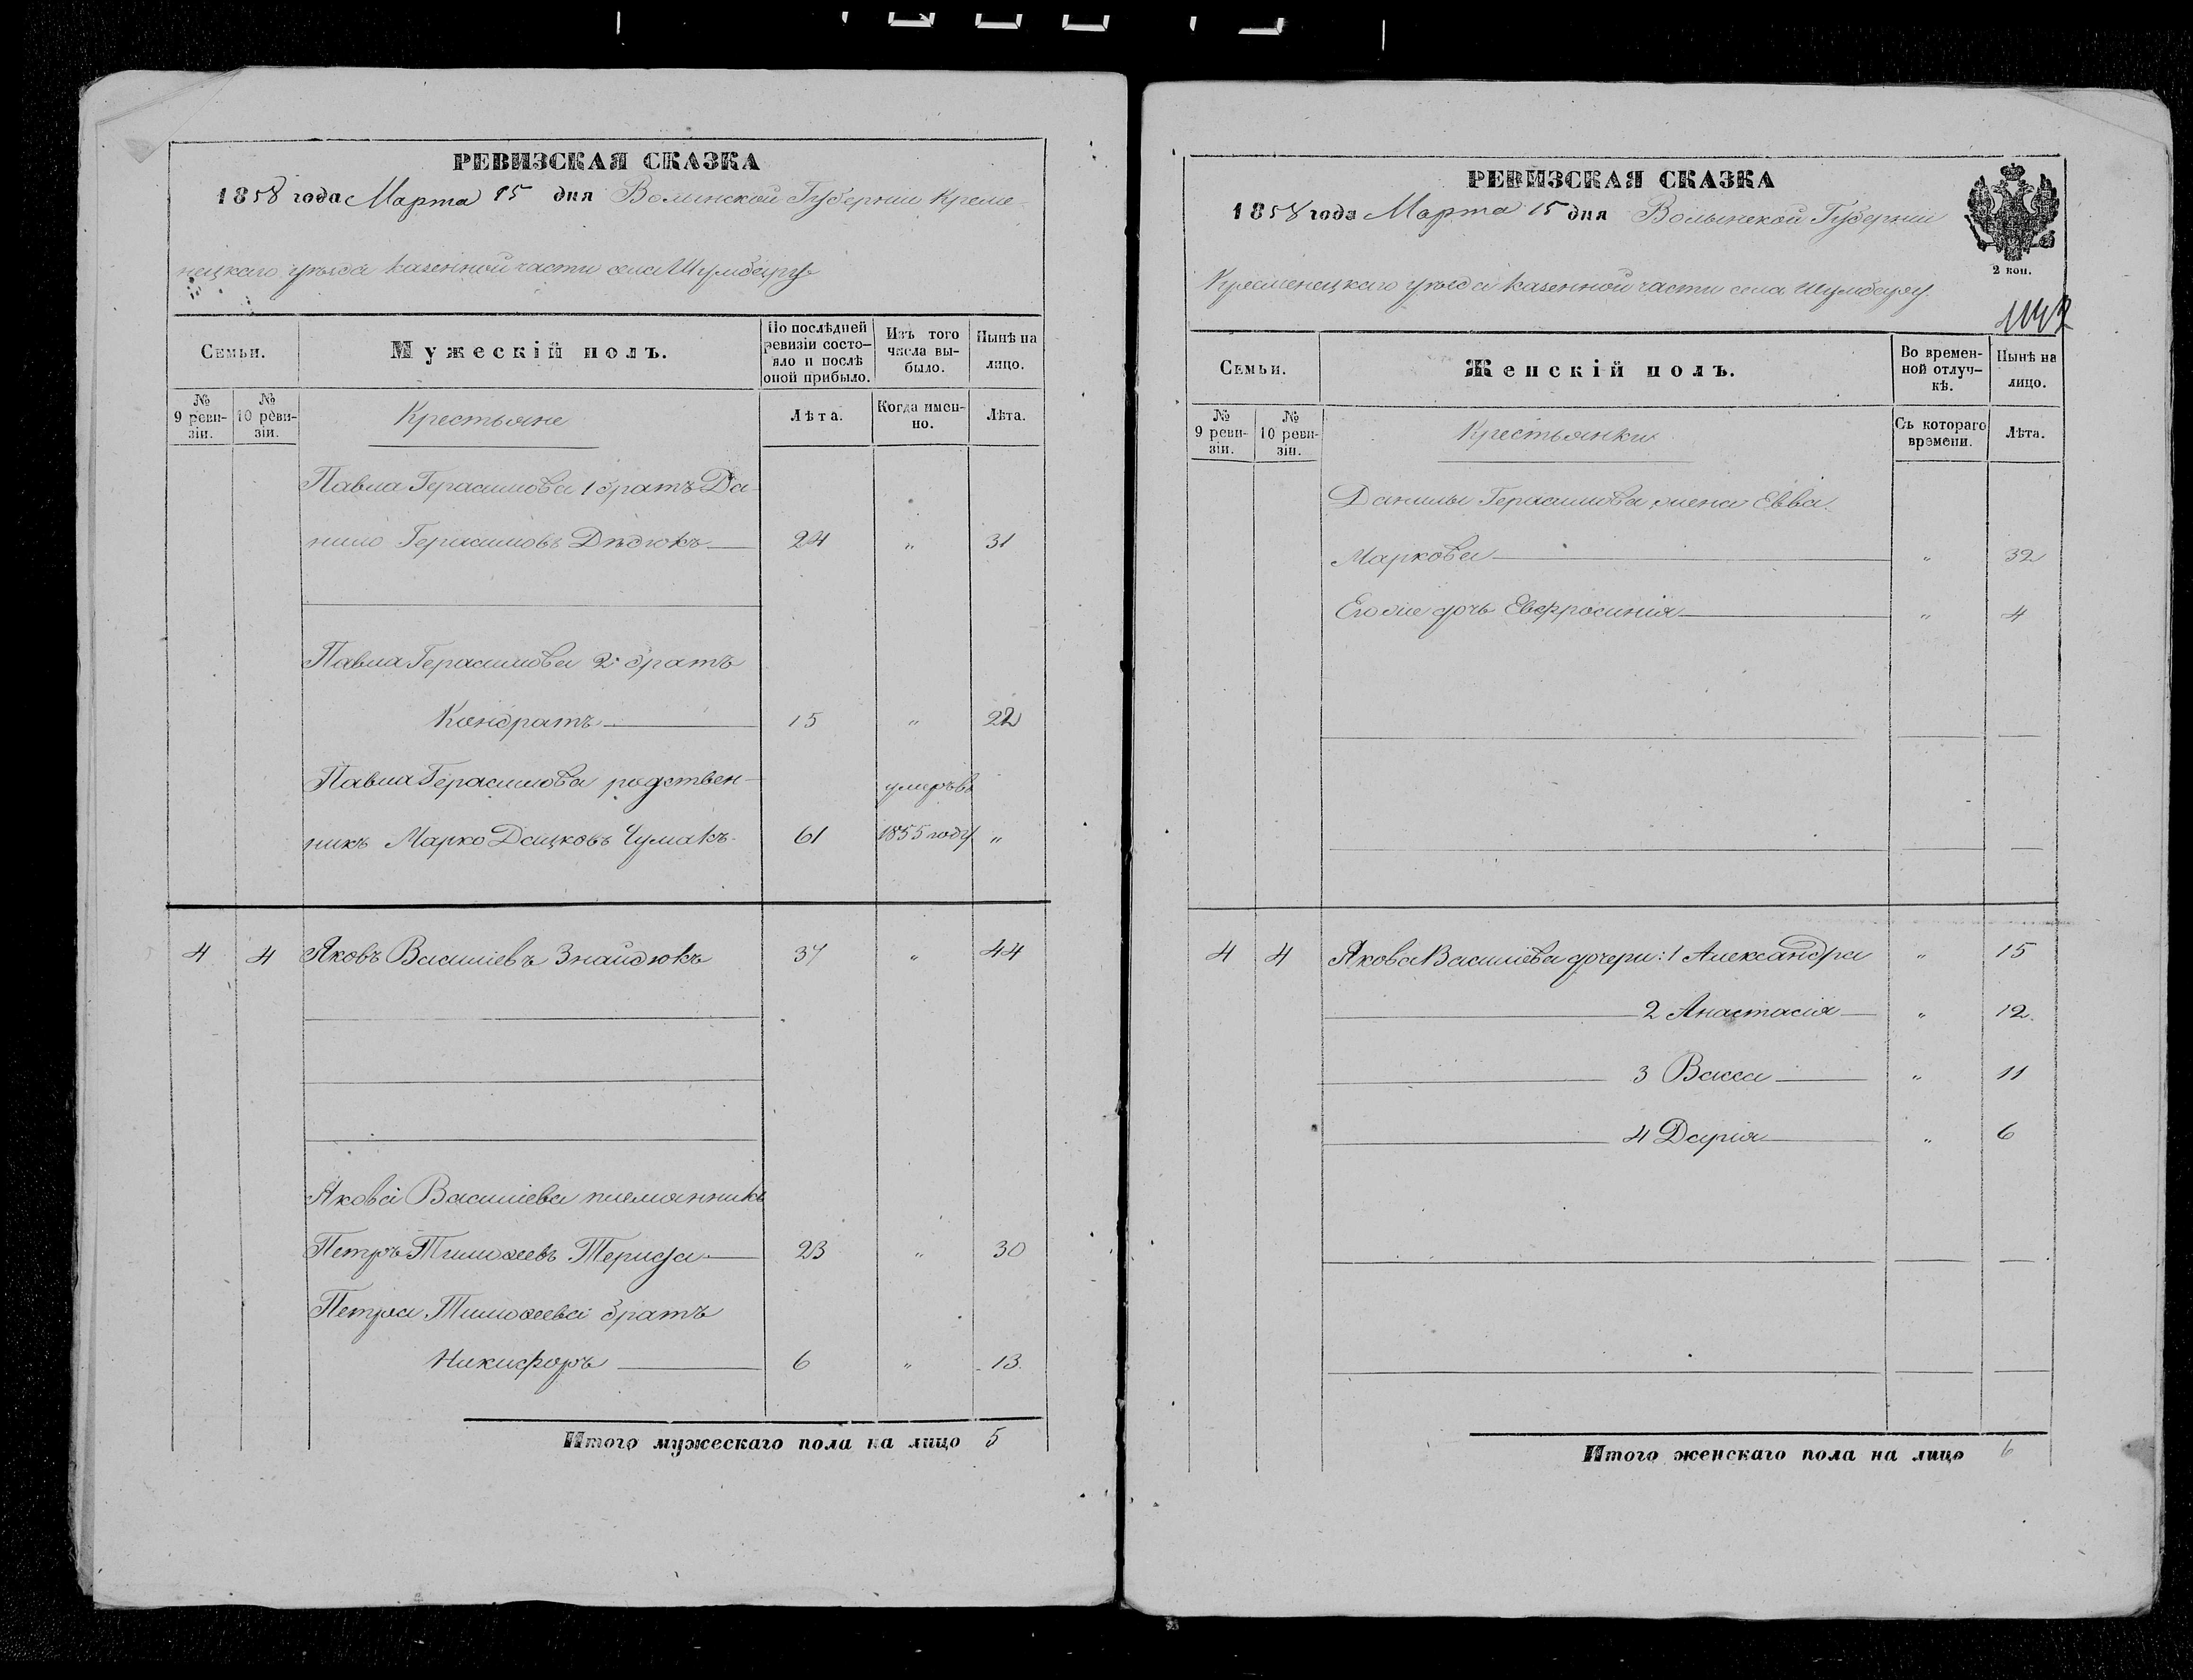 РЕВИЗСКАЯ СКАЗКА
1858 года Марта 15 дня Волынской Губернии Креме-
нецкаго уѣзда казенной части села Шумбару
Семьи.
Мужескій полъ.
По послѣдней ревизіи состо-яло и послѣ оной прибыло.
Изъ того числа вы-было.
Нынѣ на лицо.
№ 9 реви-зіи.
№ 10 реви-зіи.
Крестьяне
Лѣта.
Когда имен-но.
Лѣта.
Павла Герасимова 1 братъ Да-
нило Герасимовъ Дѣдюкъ 24 „ 31
Павла Герасимова 2й братъ
Кондратъ 15 „ 22
Павла Герасимова родствен- умеръ въ
никъ Марко Дацковъ Чумакъ 61 1855 году „
4 4 Яковъ Василіевъ Знайдюкъ 37 „ 44
Якова Василіева племянникъ
Петръ Тимофеевъ 23 „ 30
Петра Тимофеева братъ
Никифоръ 6 „ 13
Итого мужескаго пола на лицо 5
РЕВИЗСКАЯ СКАЗКА
1858 года Марта 15 дня Волынской Губерніи
2 коп.
Кременецкаго уѣзда казенной части села Шумбару
Семьи.
Женскій полъ.
Во времен-ной отлуч-кѣ.
Нынѣ на лицо.
№ 9 реви-зіи.
№ 10 реви-зіи.
Крестьянки
Съ котораго времени.
Лѣта.
Данилы Герасимова жена Евва
Маркова „ 32
Его же дочь Евфросинія „ 4
4 4 Якова Василіева дочери: 1 Александра „ 15
2 Анастасія „ 12
3 Васса „ 11
4 Дарія „ 6
Итого женскаго пола на лицо 6